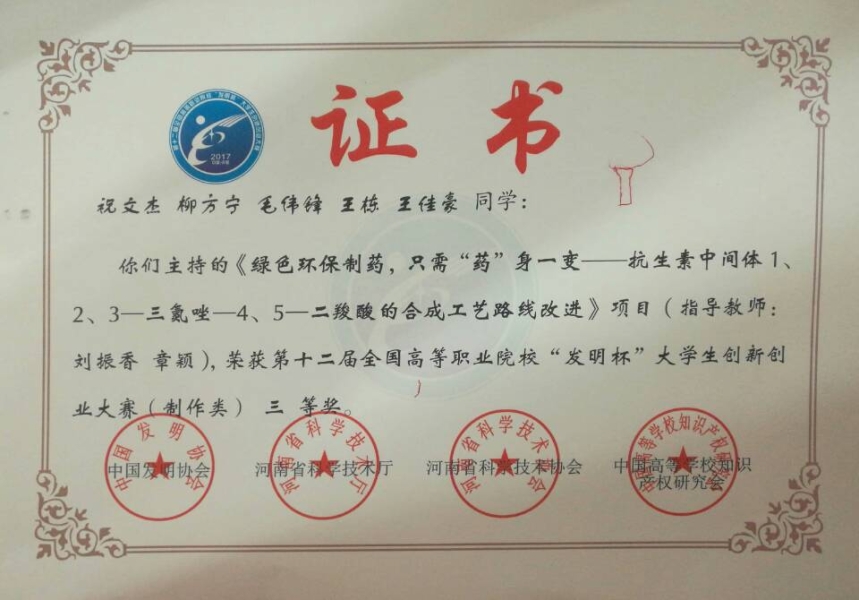 证书
2017
祝文杰 柳方宁 毛伟锋 王栋 王佳豪 同学：
你们主持的《绿色环保制药，只需“药”身一变——抗生素中间体1、
2、3—三氮唑—4、5—二羧酸的合成工艺路线改进》项目（指导教师：
刘振香 章颖），荣获第十二届全国高等职业院校“发明杯”大学生创新创
业大赛（制作类） 三 等奖。
中国发明协会
河南省科学技术厅
河南省科学技术协会
中国高等学校知识
产权研究会
中国发明协会
河南省科学技术厅
河南省科学技术协会